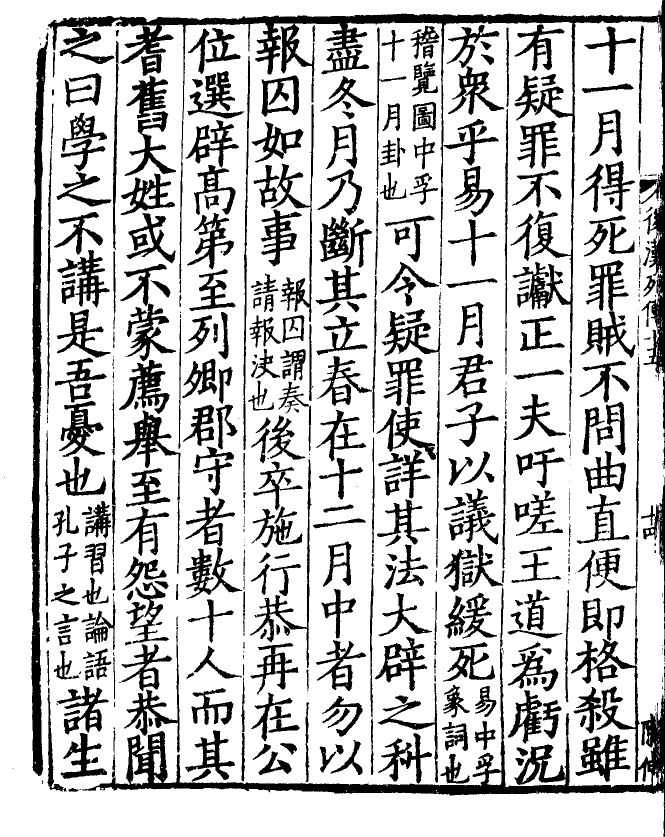 後漢列傳十五
十一月得死罪賊不問曲直便即格殺雖
有疑罪不復讞正一夫吁嗟王道爲虧況
於衆乎易十一月君子以議獄緩死易中孚象詞也
稽覽圖中孚十一月卦也可令疑罪使詳其法大辟之科
盡冬月乃斷其立春在十二月中者勿以
報囚如故事報囚謂奏請報決也後卒施行恭再在公
位選辟高第至列卿郡守者數十人而其
耆舊大姓或不蒙薦舉至有怨望者恭聞
之曰學之不講是吾憂也講習也論語孔子之言也諸生